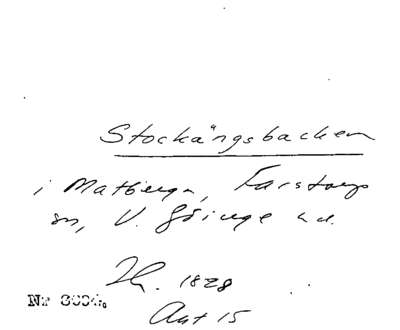 Stockängsbacken
i Matberga, Farstorps
sn, V. Göinge hd.
Th. 1828
Akt 15